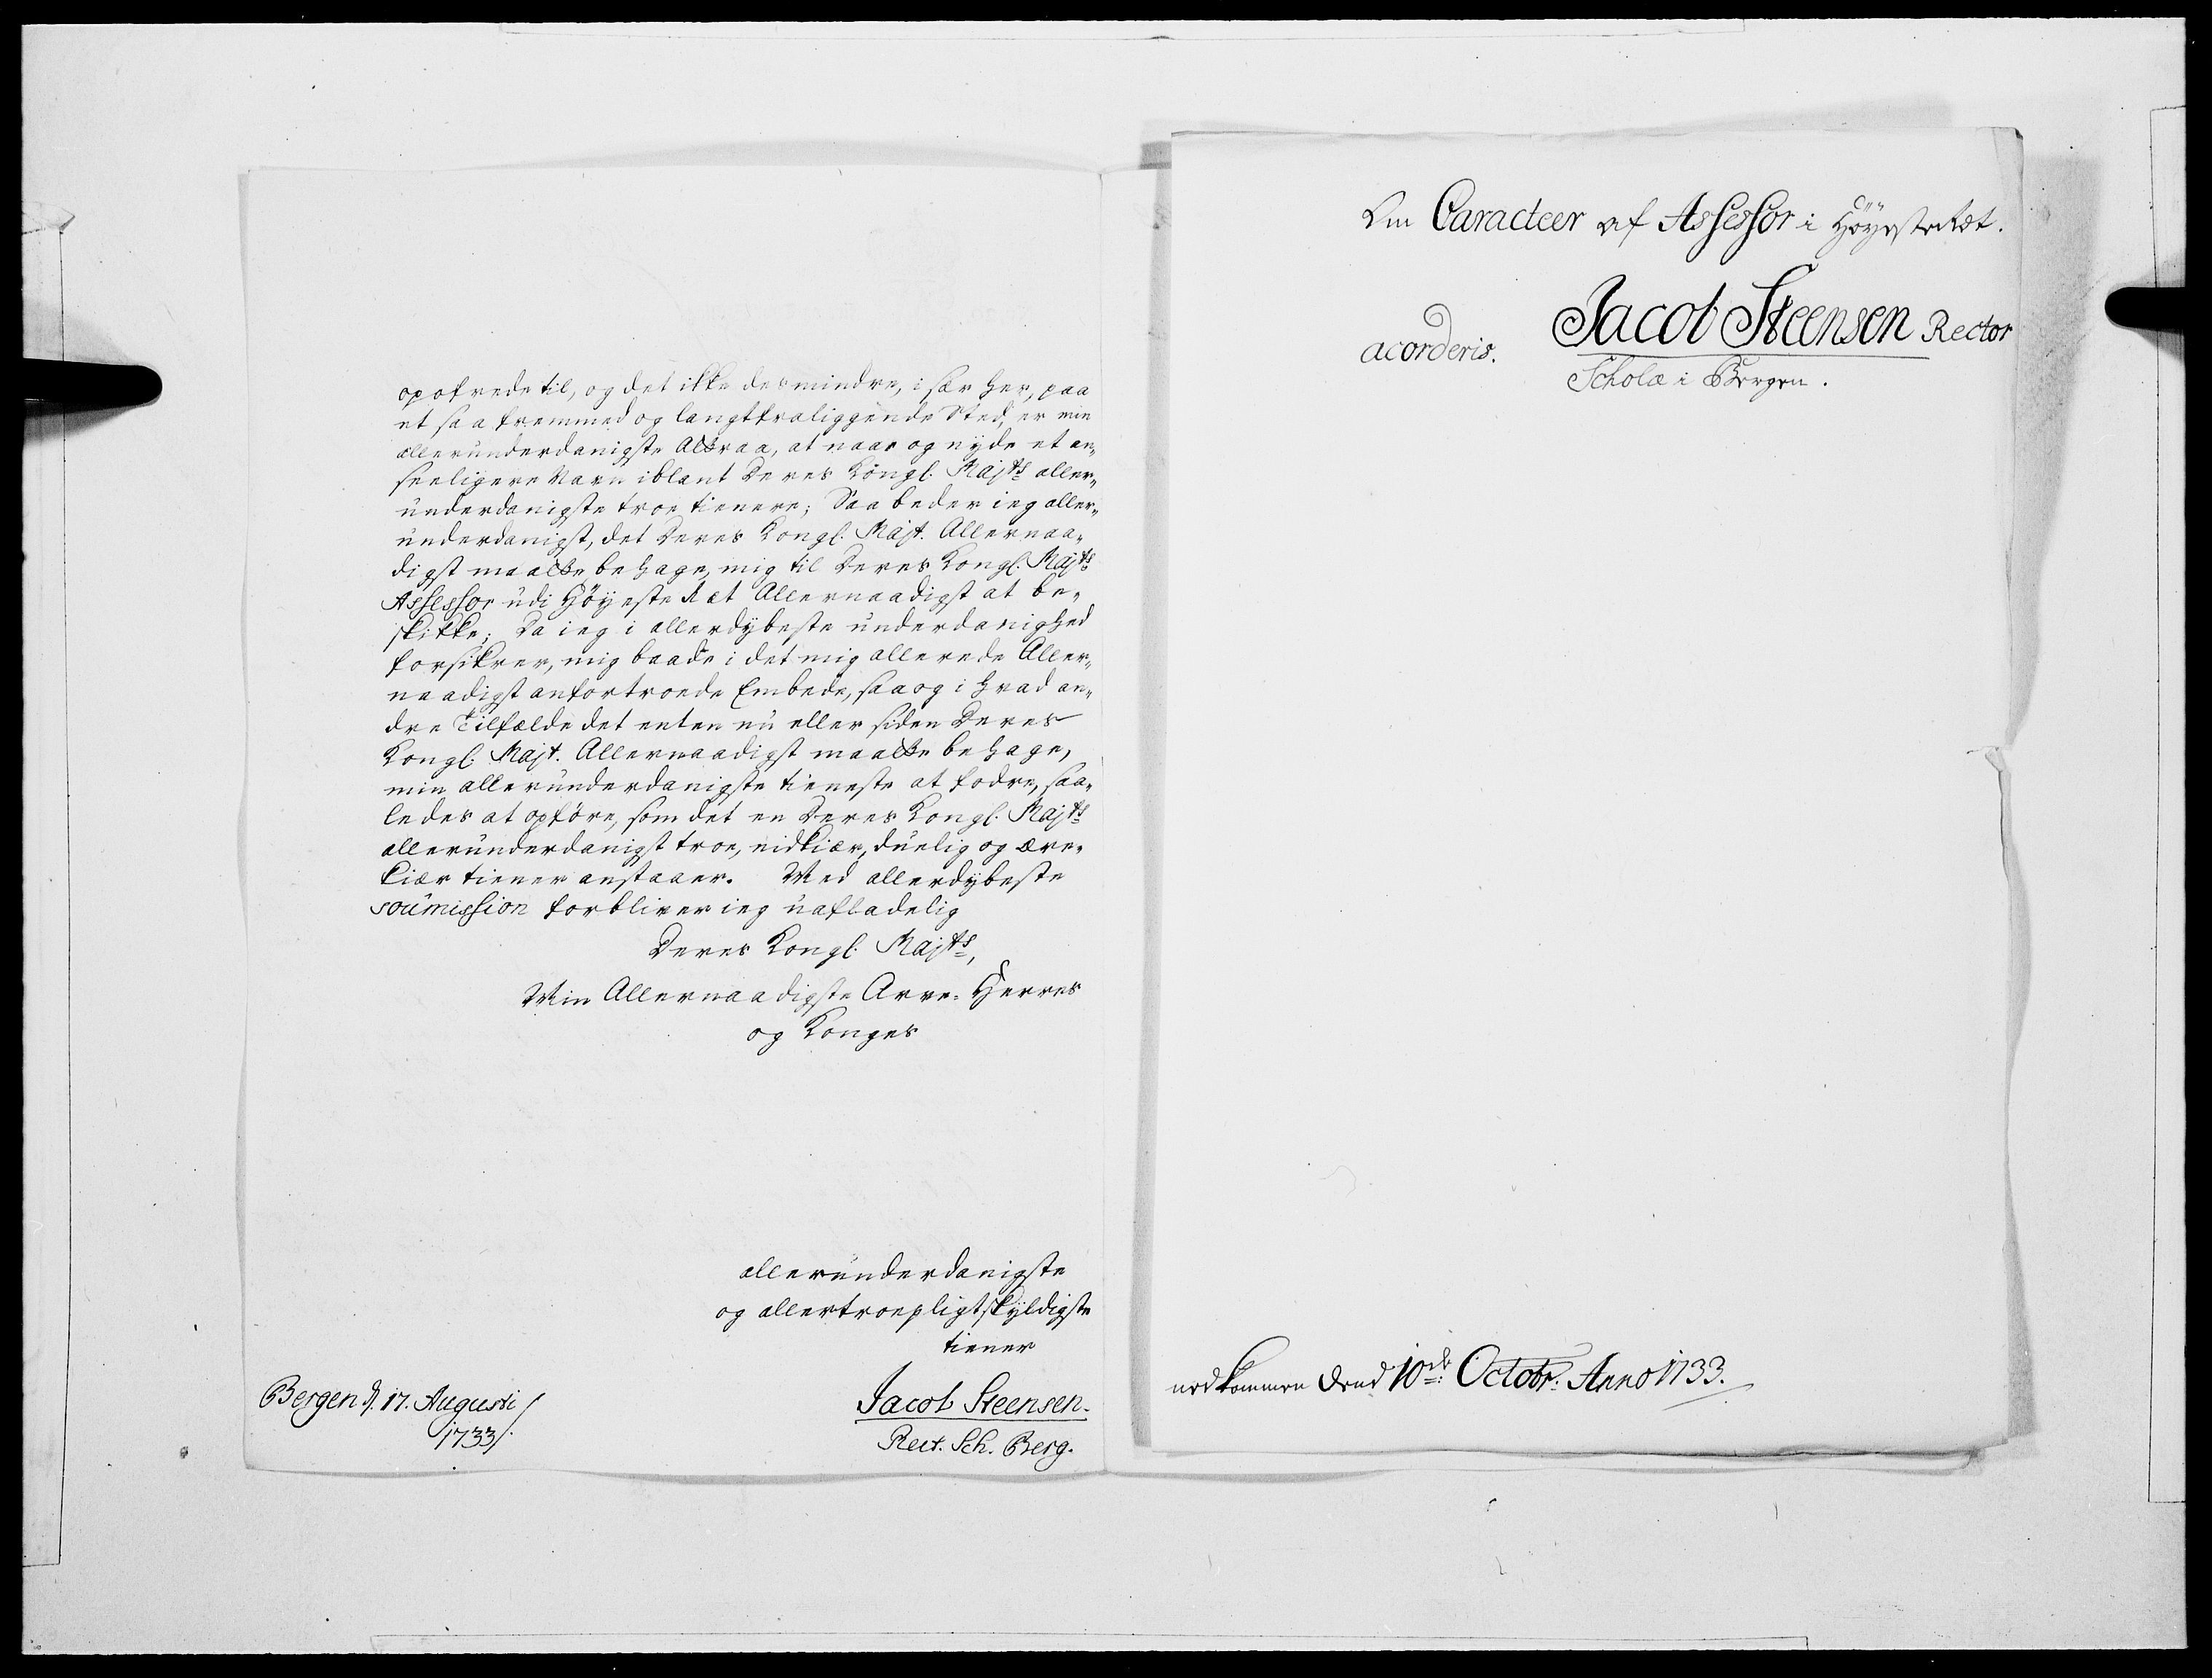 opofrede til, og det ikke desmindre, i sær her, paa
et saa fremmed og langtfraliggende Sted, er min
allerunderdanigste Attraa, at naae og nyde et an-
seeligere Navn iblant Deres Kongl. Majts aller-
underdanigste troe tienere; Saa beder ieg aller-
underdanigst, det Deres Kongl. Majt. Allernaa-
digst maatte behage, mig til Deres Kongl. Majts
Assessor udi Höyeste Ræt Allernaadigst at be-
skikke; Da ieg i allerdybeste underdanighed
forsikrer, mig baade i det mig allerede Aller-
naadigst anfortroede Embede, saa og i hvad an-
dre Tilfælde det enten nu eller siden Deres
Kongl. Majt. Allernaadigst maatte behage,
min allerunderdanigste tieneste at fodre, saa-
ledes at opföre, som det en Deres Kongl. Majts
allerunderdanigst troe, nidkiær, duelig og ære-
kiær tiener anstaaer. Med allerdybeste
soumission forbliver ieg uafladelig
Deres Kongl. Majts,
Min Allernaadigste Arve-Herres
og Konges
allerunderdanigste
og allertroepligtskyldigste
tiener
Jacob Steensen.
Rect. Sch. Berg.
Bergen d. 17. Augusti
1733/.
Om Caracteer af Assessor i Höyesteræt.
Jacob Steensen Rector
acorderis.
Scholæ i Bergen.
nedkommen dend 10de Octobr. Anno 1733.